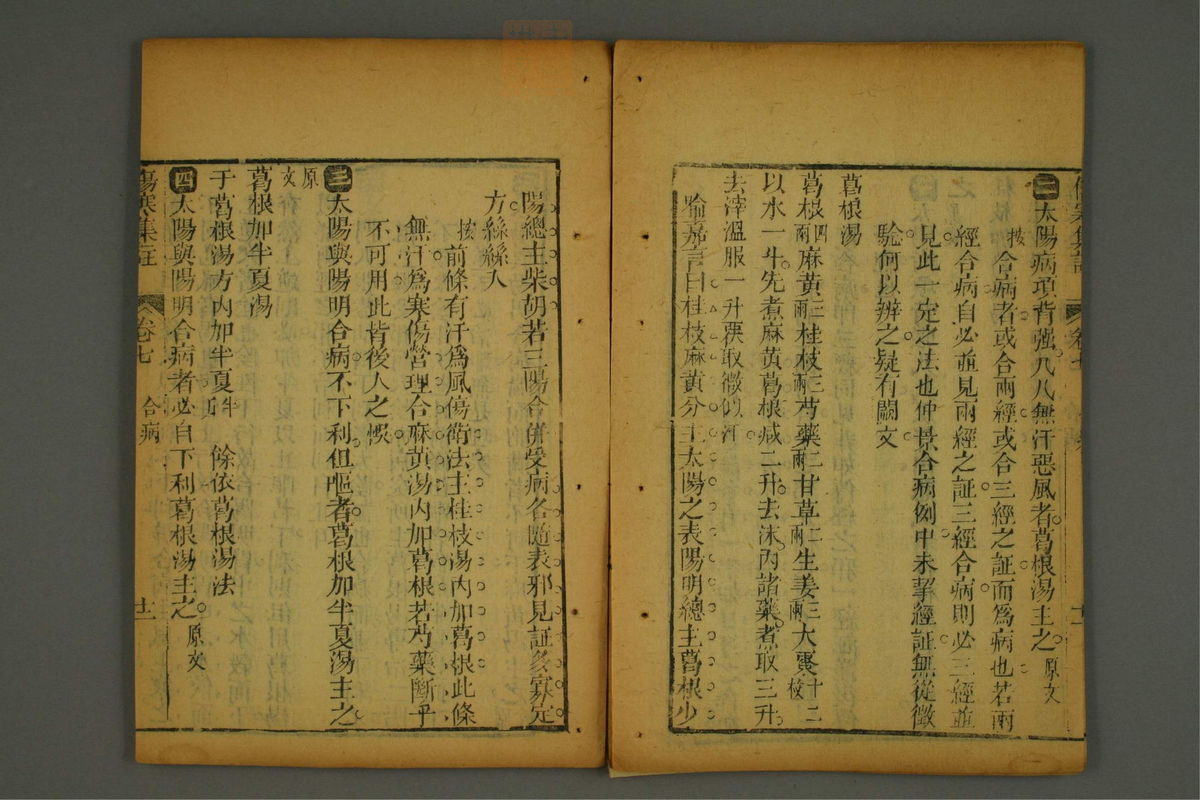 二太陽病項背強几几無汗惡風者葛根湯主之原文
按合病者或合兩經或合三經之証而爲病也若兩
經合病自必並見兩經之証三經合病則必三經並
見此一定之法也仲景合病例中未挈經証無從徵
驗何以辨之疑有闕文
葛根湯
葛根四兩麻黃三兩桂枝二兩芍藥二兩甘草二兩生姜三兩大棗十二枚
以水一斗先煮麻黃葛根減二升去沫內諸藥煮取三升
去滓溫服一升覆取微似汗
喻嘉言曰桂枝麻黃分主太陽之表陽明總主葛根少
陽總主柴胡若三陽合併受病各隨表邪見証多寡定
方絲絲入
按前條有汗爲風傷衛法主桂枝湯內加葛根此條
無汗爲寒傷營理合麻黃湯內加葛根若芍藥斷乎
不可用此皆後人之悞
三太陽與陽明合病不下利但嘔者葛根加半夏湯主之
原文
葛根加半夏湯
于葛根湯方內加半夏半升 餘依葛根湯法
四太陽與陽明合病者必自下利葛根湯主之原文
傷寒集註 卷七 合病 十一